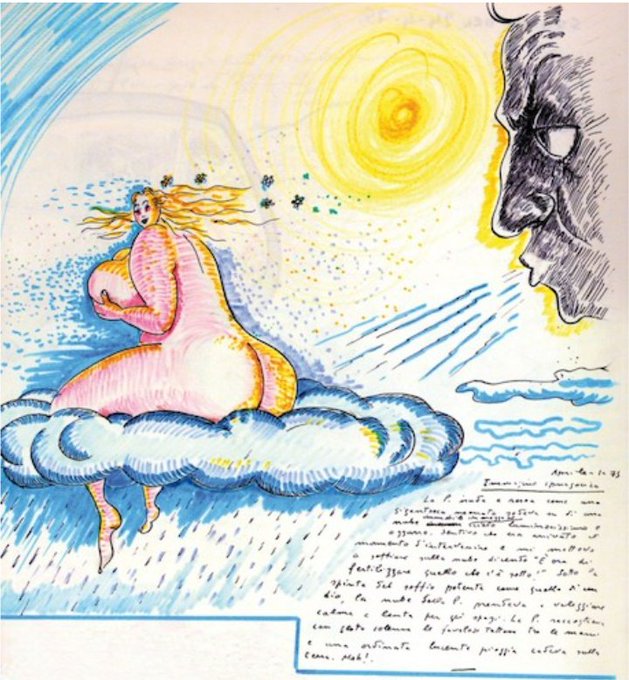 Aprile
Immagine ipnagogica
La P. nuda e rosea come una
gigantesca neonata sedeva su di una
nube
azzurra. Sentivo che era arrivato il
momento d'intervenire e mi mettevo
a soffiare sulla nube dicendo "È ora di
fertilizzare quello che c'è sotto." Sotto la
spinta del soffio potente come quello di un
dio, la nube della P. prendeva a veleggiare
calma e lenta per gli spazi. La P. raccoglieva
con gesto solenne le favolose tettone tra le mani
e una ordinata lucente pioggia cadeva sulla
terra. Mah!.